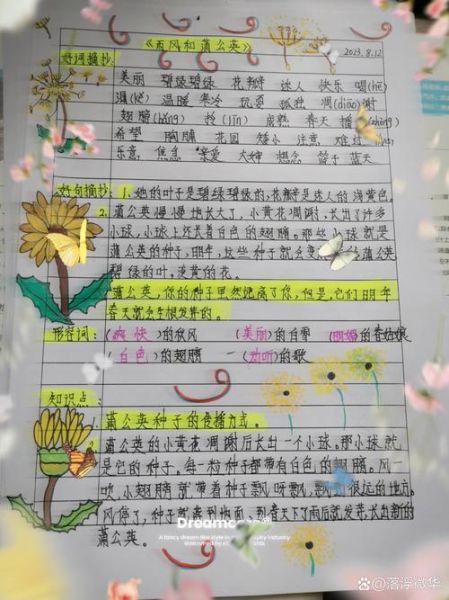 《雨风和蒲公英》
2023.8.12
好词摘抄:
美丽 碧绿碧绿 花瓣 迷人 快乐 喝(hē)
温暖 寒冷 玩耍 孤独 凋(diāo)谢
翅膀(bǎng) 成熟 春天 播
希望 胸脯 花园 矮小 注意 难过
乐意 焦急 亲爱 大婶 想念 蓝天
好句摘抄: 1、她的叶子是碧绿碧绿的,花瓣是迷人的浅黄色。
2、蒲公英慢慢地长大了,小黄花凋谢,长出了许多
小球,小球上还长着白色的翅膀。那些小球就是
蒲公英的种子,明年,这些种子就会变 蒲公英
碧绿的叶,淡黄的花。
蒲公英,你的种子虽然离开了你,但是,它们明年
春天就会生根发芽的。
形容词: (疯快)的秋风 (美丽)的白雪 (明媚)的春姑娘
(白色)的翅膀 (动听)的歌
知识点:
蒲公英种子的传播方式。
蒲公英的小黄花凋谢后长出一个小球。那小球就
是它的种子。每一粒种子都带有白色的翅膀。风一
吹,小翅膀就带着种子飘呀飘,飘 很远的地方。
风停了,种子就落到地面,到春天下了雨后就发芽,长出新的
蒲公英。
Dreamc
A fancy dream lifestyle in
百家号/落浮微华